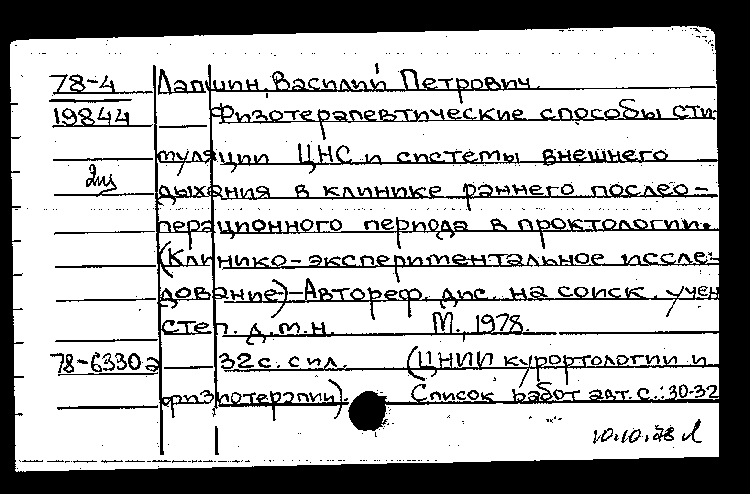 78-4 Лапшин, Василий Петрович.
19844 Физотерапевтические способы сти
муляции ЦНС и системы внешнего
дыхания в клинике раннего послео-
перационного периода в проктологии.
(Клинико-экспериментальное иссле-
дование) – Автореф. дис. на соиск. учен
степ. д.м.н. М., 1978.
78-6330а 32 с. с ил. (ЦНИИ курортологии и
физиотерапии). Список работ авт. с.: 30-32
10.10.78